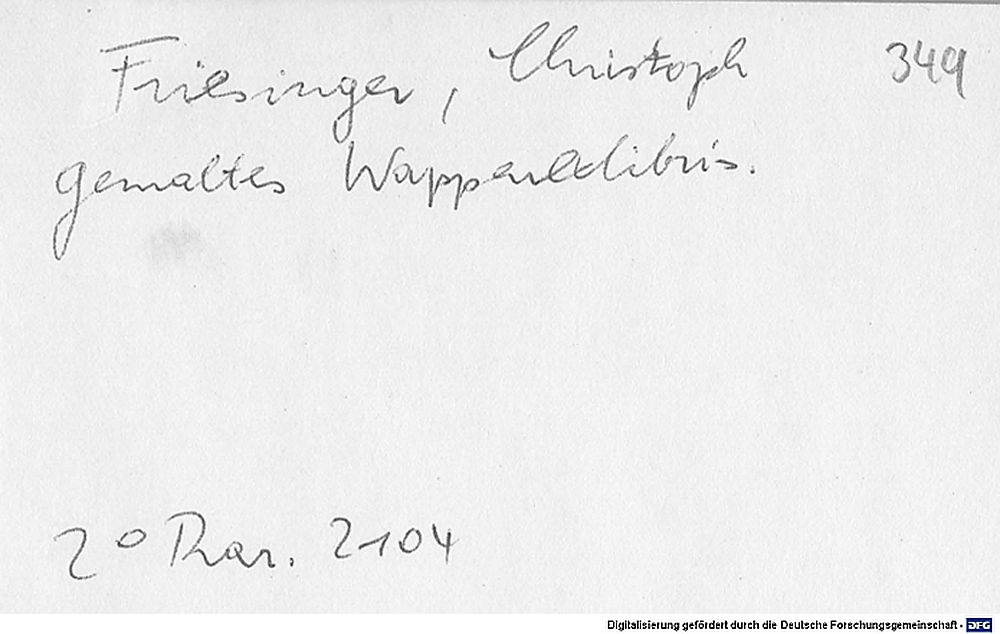 Friesinger, Christoph 349
gemaltes Wappenexlibris.
2° Rar. 2104
Digitalisierung gefördert durch die Deutsche Forschungsgemeinschaft - DFG